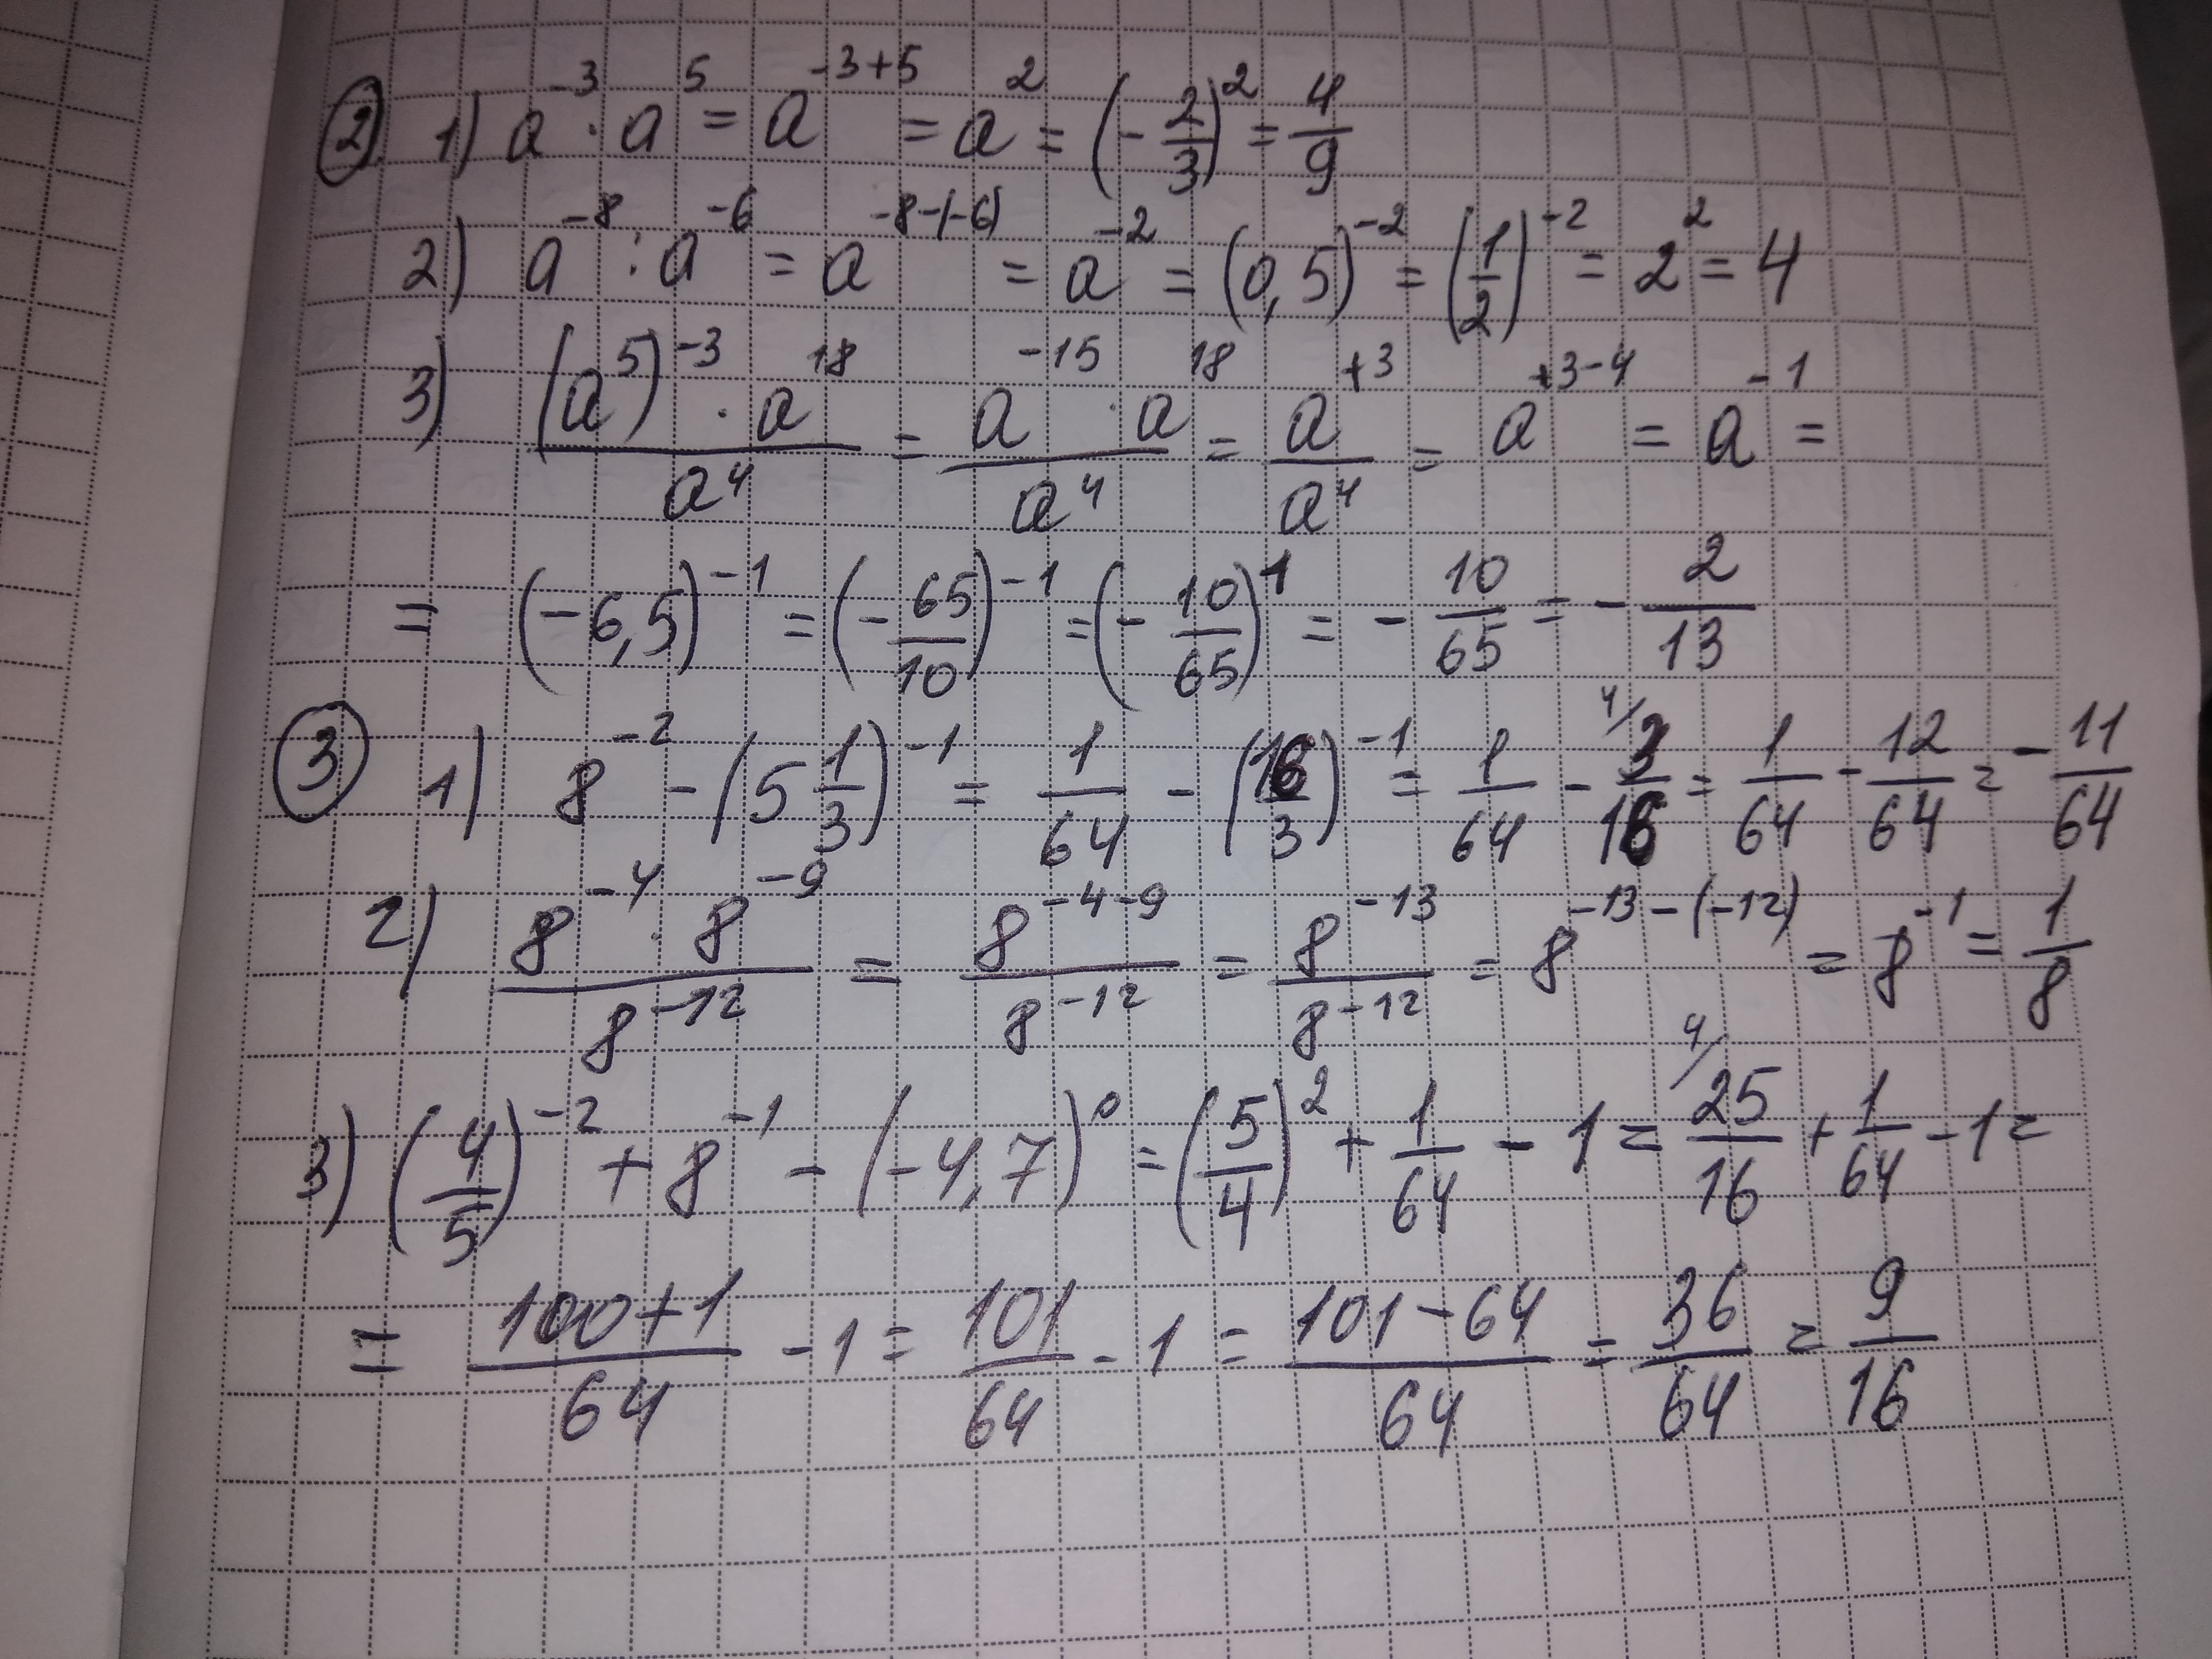 ② 1) a⁻³ · a⁵ = a⁻³⁺⁵ = a² = (-2/3)² = 4/9
2) a⁻⁸ : a⁻⁶ = a⁻⁸⁻⁽⁻⁶⁾ = a⁻² = (0,5)⁻² = (1/2)⁻² = 2² = 4
3) (a⁵)⁻³ · a¹⁸ / a⁴ = a⁻¹⁵ · a¹⁸ / a⁴ = a⁺³ / a⁴ = a⁺³⁻⁴ = a⁻¹ =
= (-6,5)⁻¹ = (-65/10)⁻¹ = (-10/65)¹ = -10/65 = -2/13
③ 1) 8⁻² - (5 1/3)⁻¹ = 1/64 - (16/3)⁻¹ = 1/64 - ⁴⁄ 3/16 = 1/64 - 12/64 = -11/64
2) 8⁻⁴ · 8⁻⁹ / 8⁻¹² = 8⁻⁴⁻⁹ / 8⁻¹² = 8⁻¹³ / 8⁻¹² = 8⁻¹³⁻⁽⁻¹²⁾ = 8⁻¹ = 1/8
3) (4/5)⁻² + 8⁻¹ - (-4,7)⁰ = (5/4)² + 1/64 - 1 = ⁴⁄ 25/16 + 1/64 - 1 =
= 100+1/64 - 1 = 101/64 - 1 = 101-64/64 = 36/64 = 9/16